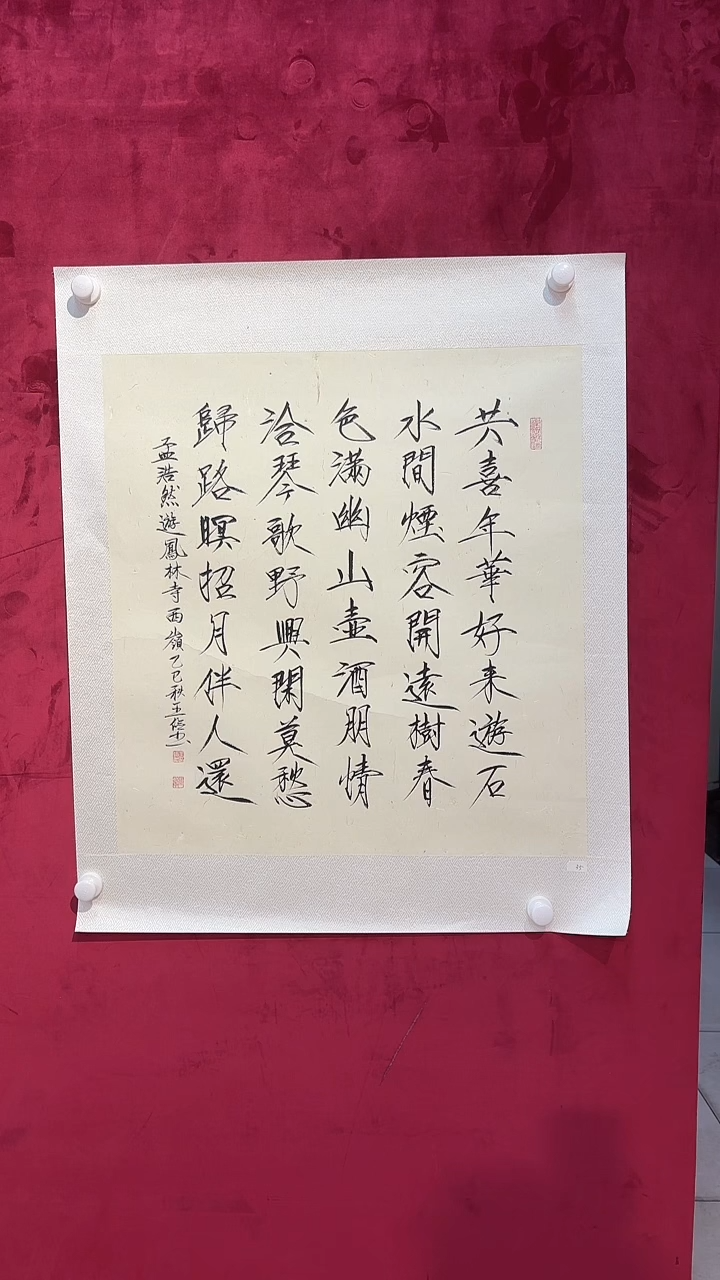 共喜年華好来遊石
水間煙容開遠樹春
色滿幽山壷酒朋情
洽琴歌野興閑莫愁
歸路暝招月伴人還
孟浩然遊鳳林寺西嶺乙巳秋王